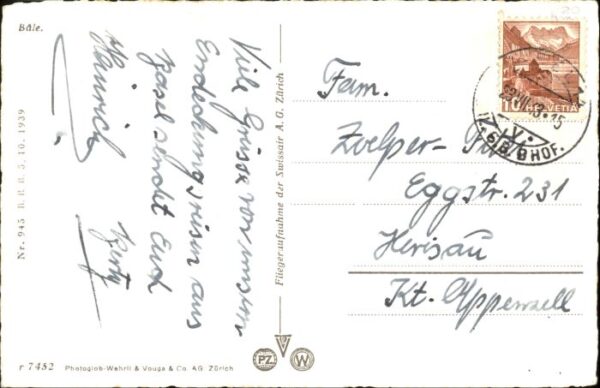 Bâle.
Viele Grüsse von unsern
Endeckungsreisen aus
Basel sendet Euch
Berty
Heinrich
Nr. 945 B.R.B. 3. 10. 1939
Fliegeraufnahme der Swissair A. G. Zürich
Fam.
Eggstr. 231
Herisau
Kt. Appenzell
10 HELVETIA
BHOF.
r 7452 Photoglob-Wehrli & Vouga & Co. AG. Zürich
PZ
W